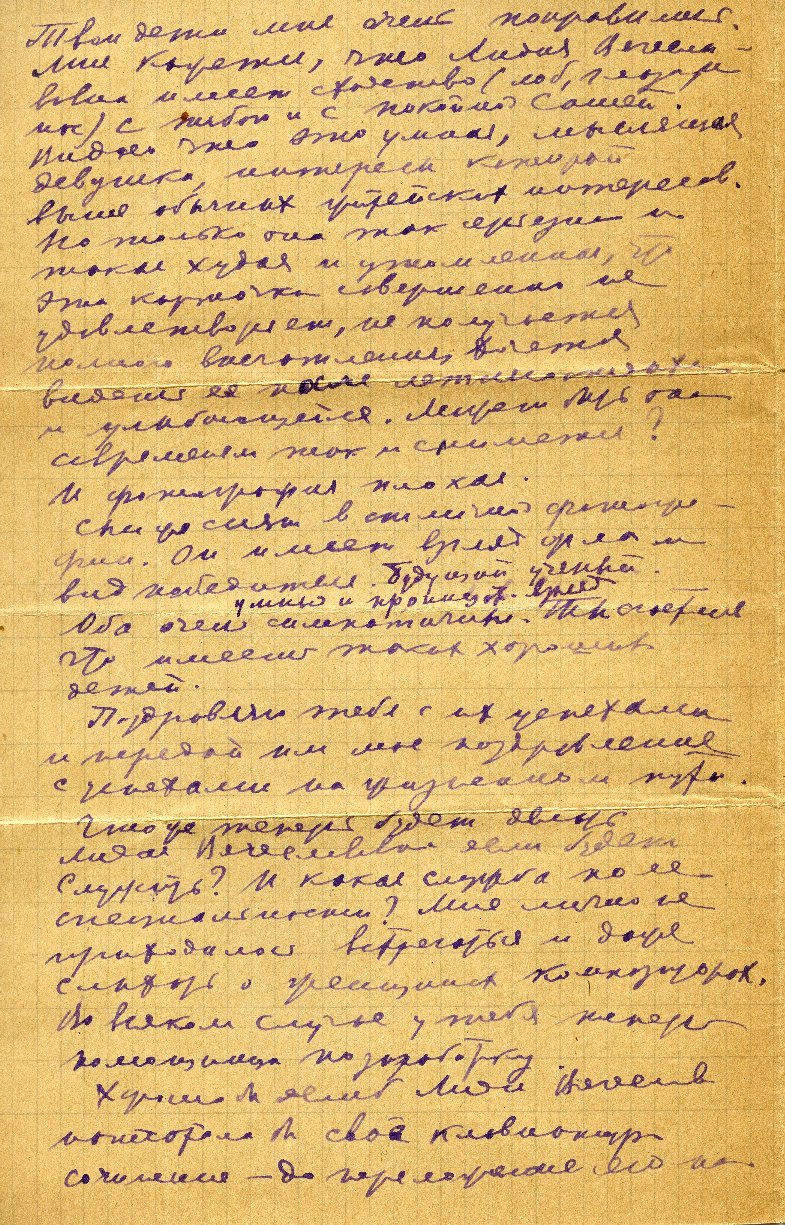 Твои дети мне очень понравились.
Мне кажется, что Лидия Вячесла-
вовна имеет сходство (лоб, глаза,
нос) с тобой и с покойной Сашей.
Видно что это умная, мыслящая
девушка, интересы которой
выше обычных житейских интересов.
Но только она так серьезна и
такая худая и утомленная, что
эта карточка совершенно не
удовлетворяет, не получается
полного впечатления. Хочется
видеть ее после
и улыбающейся. Может быть она
современем так и снимется?
И фотография плохая.
в отличной фотогра-
фии. Он имеет взгляд орла и
вид победителя. Будущий ученый.
умный и взгляд
Оба очень симпатичны. Ты счастлив
что имеешь таких хороших
детей.
Поздравляю тебя с их успехами
и передай им мое поздравление
с успехами на жизненном пути.
Что же теперь будет делать
Лидия Вячеславовна если будет
служить? И какая служба по ее
специальности? Мне лично не
приходилось встречаться и даже
слыхать о женщинах композиторах.
Во всяком случае у тебя теперь
помощница по заработку
Хорошо бы если б Лидия Вячеслав
бы своё
сочинение – до переложения его на